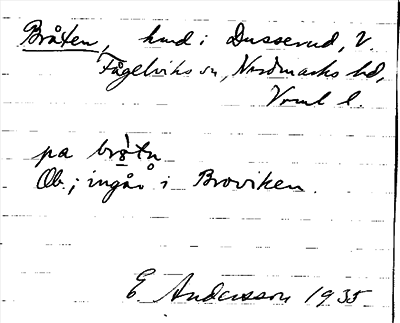 Bråten, hmd i Dusserud, V.
Fågelviks sn, Nordmarks hd,
Vrml l.
pa brǻtn
Ob.; ingår i Broviken.
E Andersson 1935